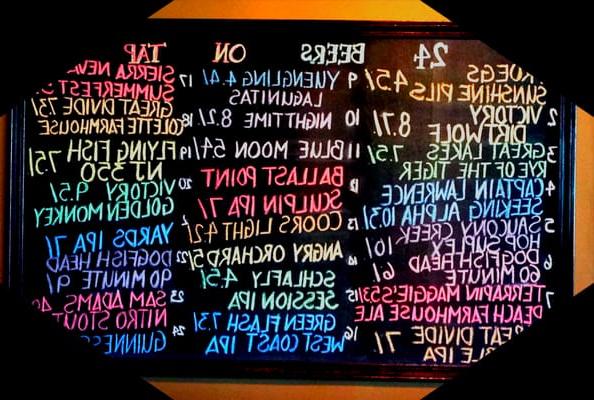 24 BEERS ON TAP
RUEGS
SUNSHINE PILS 4.5/
2 VICTORY
DIRT WOLF 8.7/.
3 GREAT LAKES 7.5/
RYE OF THE TIGER
4 CAPTAIN LAWRENCE
SEEKING ALPHA 10.3/
5 SAUCONY CREEK
HOP 10/
6 DOGFISH HEAD
60 MINUTE 6/
7 TERRAPIN MAGGIE'S 5.3/
PEACH FARMHOUSE ALE
EAT DIVIDE 7/
BLE IPA
9 YUENGLING 4.4/
LAGUNITAS
10 NIGHTTIME 8.2/
11 BLUE MOON 5.4/
BALLAST POINT
SCULPIN IPA 7/
13 COORS LIGHT 4.2/
ANGRY ORCHARD 5/
15 SCHLAFLY 4.5/
SESSION IPA
16 GREEN FLASH 7.3/
WEST COAST IPA
17 SIERRA NEVA
SUMMERFEST 5
18 GREAT DIVIDE 7.3/
COLETTE FARMHOUSE
19 FLYING FISH 7.5/
NJ 350
20 VICTORY 9.5/
GOLDEN MONKEY
YARDS IPA 7/
22 DOGFISH HEAD
90 MINUTE 9/
23 SAM ADAMS
NITRO STOUT
24 GUINNESS